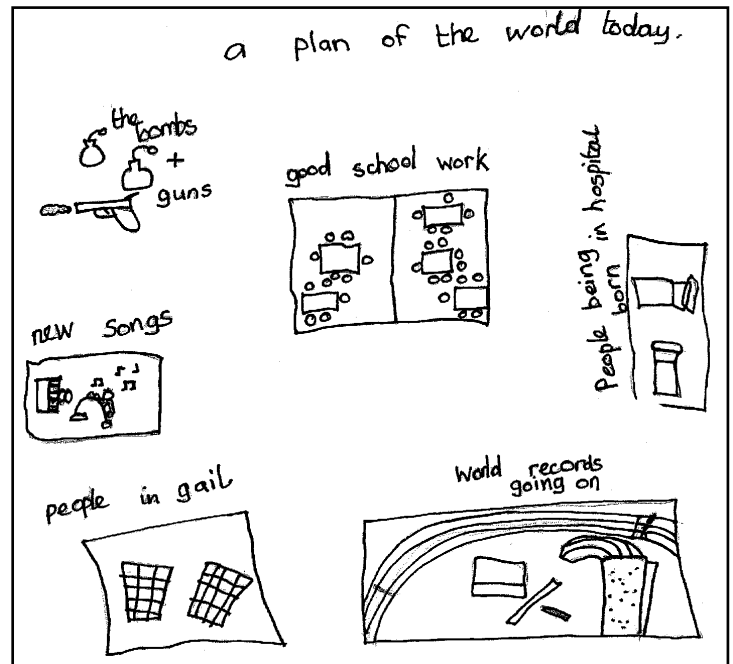 a plan of the world today.
the
bombs
+
guns
good school work
People being in hospital
born
new songs
people in gail
World records
going on